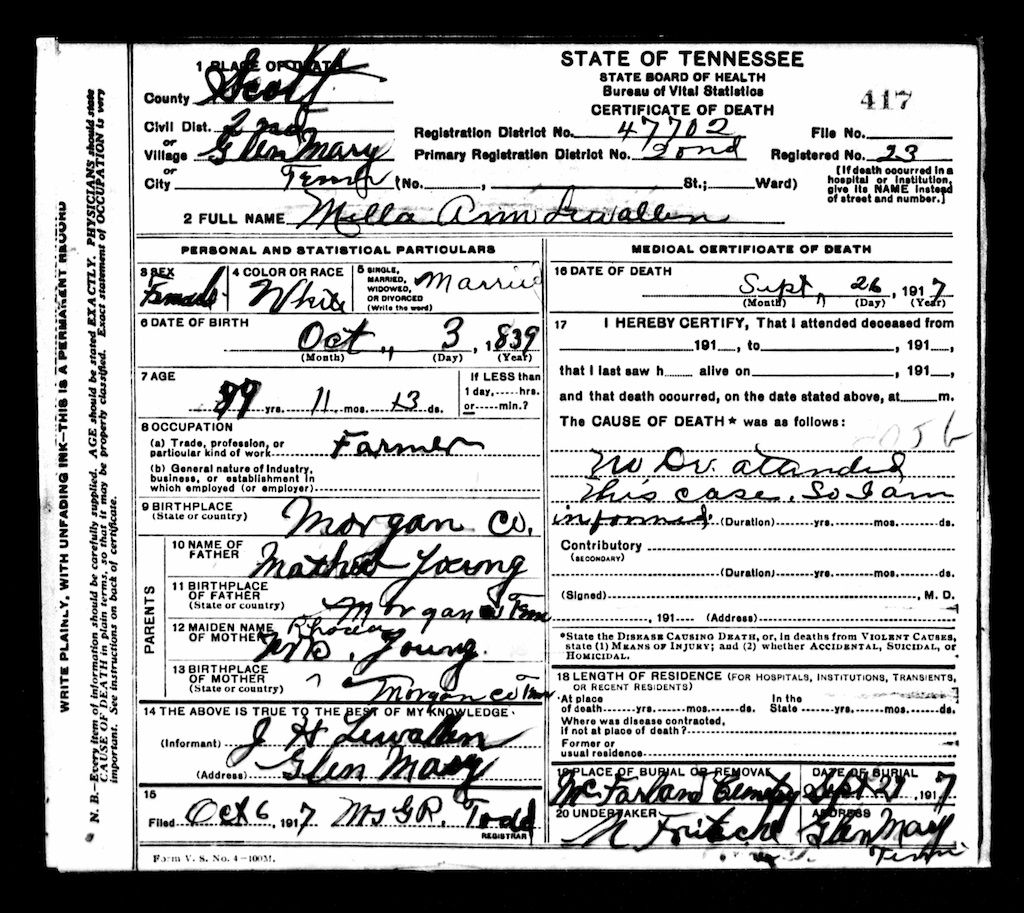 STATE OF TENNESSEE
STATE BOARD OF HEALTH
Bureau of Vital Statistics
CERTIFICATE OF DEATH
417
1 PLACE OF DEATH
County Scott
Civil Dist. 2nd
or
Village Glen Mary
or
City Tenn (No. , St.; Ward)
Registration District No. 47702 File No.
Primary Registration District No. 2ond Registered No. 23
[If death occurred in a
hospital or institution,
give its NAME instead
of street and number.]
2 FULL NAME Milla Ann Lewallen
PERSONAL AND STATISTICAL PARTICULARS
3 SEX Female
4 COLOR OR RACE White
5 SINGLE,
MARRIED,
WIDOWED,
OR DIVORCED
(Write the word)
Married
6 DATE OF BIRTH
Oct 3, 1839
(Month) (Day) (Year)
7 AGE
yrs. 11 mos. ds.
If LESS than
1 day, hrs.
or min.?
8 OCCUPATION
(a) Trade, profession, or
particular kind of work Farmer
(b) General nature of Industry,
business, or establishment in
which employed (or employer)
9 BIRTHPLACE
(State or country) Morgan Co.
PARENTS
10 NAME OF
FATHER Young
11 BIRTHPLACE
OF FATHER
(State or country) Morgan Co Tenn
12 MAIDEN NAME
OF MOTHER Young.
13 BIRTHPLACE
OF MOTHER
(State or country) Morgan co Tenn
14 THE ABOVE IS TRUE TO THE BEST OF MY KNOWLEDGE
(Informant) J H Lewallen
(Address) Glen Mary
15
Filed Oct 6, 1917 Ms G R. Todd
REGISTRAR
Form V. S. No. 4-100M.
MEDICAL CERTIFICATE OF DEATH
16 DATE OF DEATH
Sept 26, 1917
(Month) (Day) (Year)
17 I HEREBY CERTIFY, That I attended deceased from
191 , to , 191 ,
that I last saw h alive on , 191 ,
and that death occurred, on the date stated above, at m.
The CAUSE OF DEATH* was as follows:
No Dr. attended
this case. So I am
informed. (Duration) yrs. mos. ds.
Contributory
(SECONDARY)
(Duration) yrs. mos. ds.
(Signed) , M. D.
, 191 (Address)
*State the DISEASE CAUSING DEATH, or, in deaths from VIOLENT CAUSES,
state (1) MEANS OF INJURY; and (2) whether ACCIDENTAL, SUICIDAL, or
HOMICIDAL.
18 LENGTH OF RESIDENCE (FOR HOSPITALS, INSTITUTIONS, TRANSIENTS,
OR RECENT RESIDENTS)
At place In the
of death yrs. mos. ds. State yrs. mos. ds.
Where was disease contracted,
if not at place of death?
Former or
usual residence
19 PLACE OF BURIAL OR REMOVAL
McFarland Cemetry
DATE OF BURIAL
Sept 27, 1917
20 UNDERTAKER
N Fritsche
ADDRESS
Glen Mary
Tenn
WRITE PLAINLY, WITH UNFADING INK—THIS IS A PERMANENT RECORD
N. B.—Every item of information should be carefully supplied. AGE should be stated EXACTLY. PHYSICIANS should state
CAUSE OF DEATH in plain terms, so that it may be properly classified. Exact statement of OCCUPATION is very
important. See instructions on back of certificate.